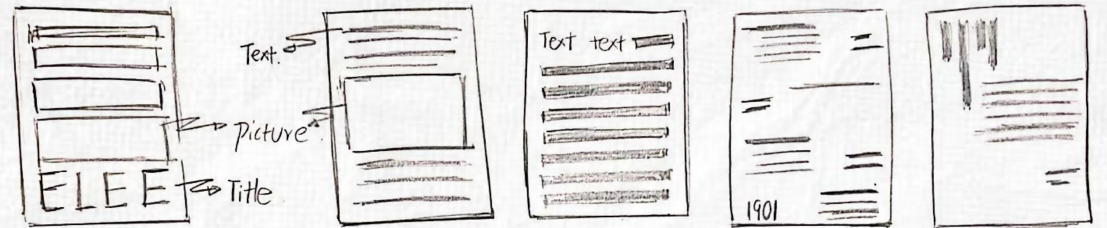 Text.
Picture
ELEE
Title
Text text
1901